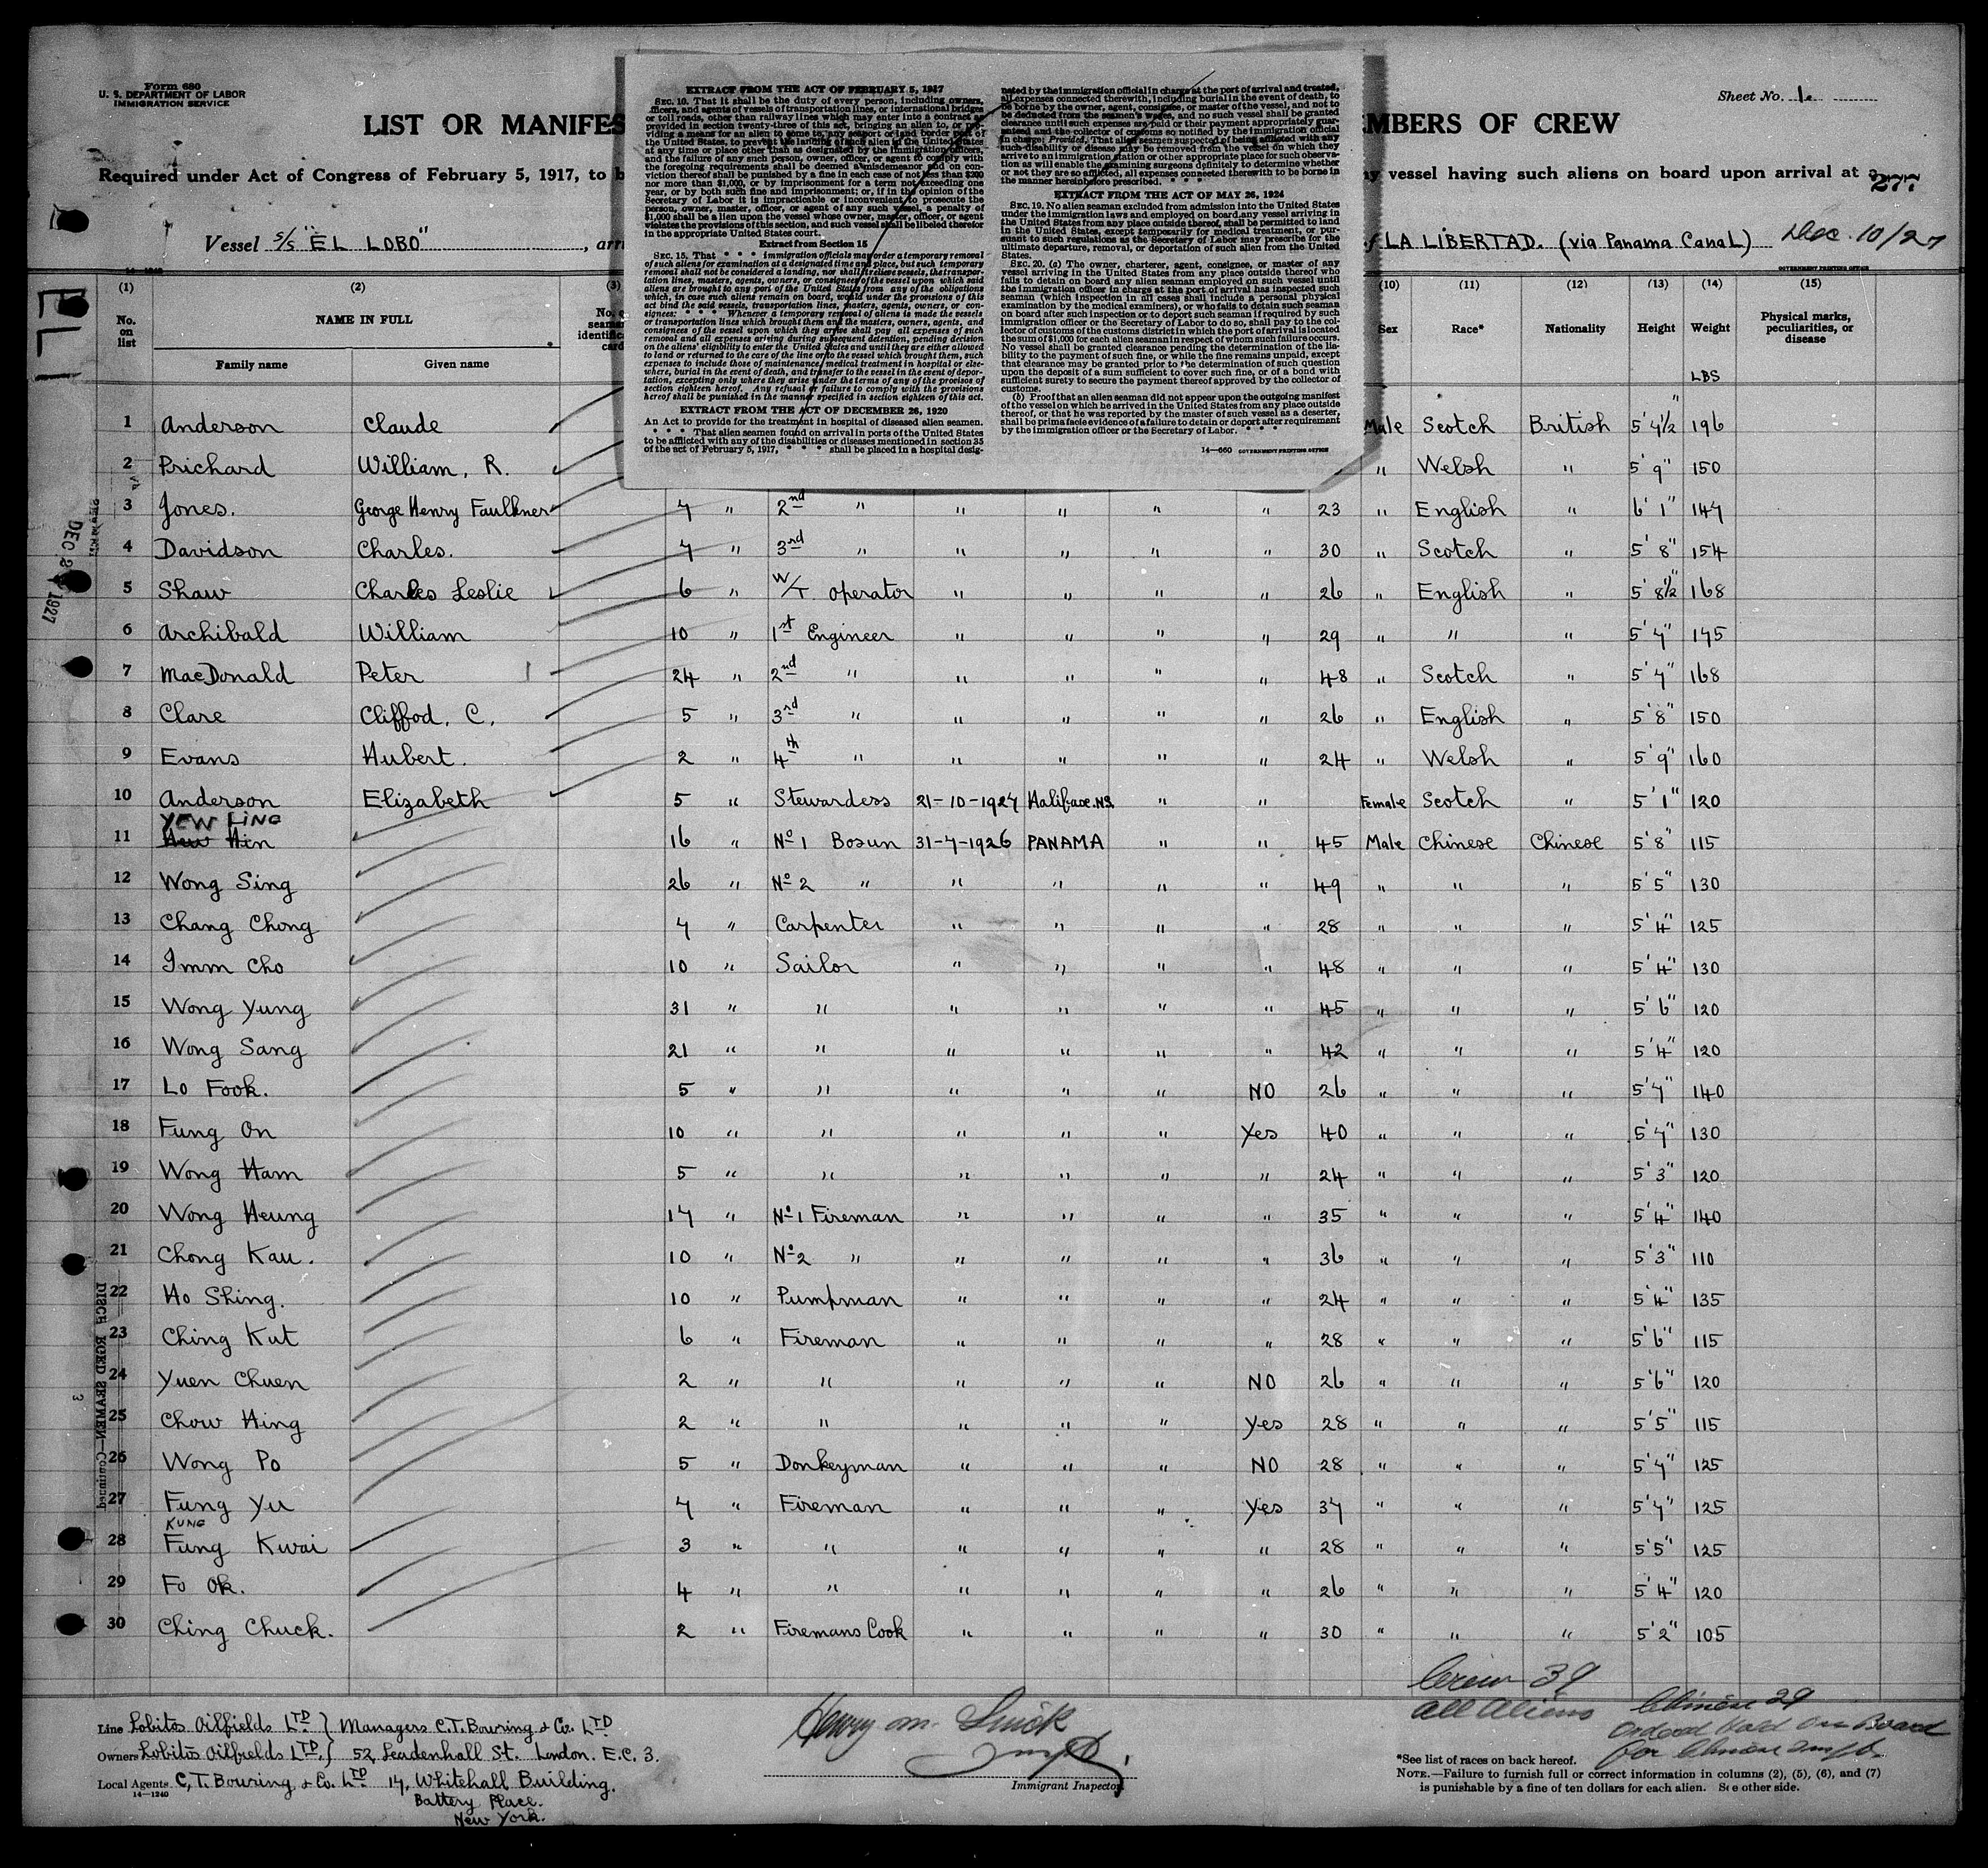 Form 680
U. S. DEPARTMENT OF LABOR
IMMIGRATION SERVICE
Sheet No. 1.
LIST OR MANIFES
MBERS OF CREW
Required under Act of Congress of February 5, 1917, to b
y vessel having such aliens on board upon arrival at
277
Vessel S/S "EL LOBO", arri
f LA LIBERTAD. (via Panama Canal) Dec. 10/27
GOVERNMENT PRINTING OFFICE
EXTRACT FROM THE ACT OF FEBRUARY 5, 1917
SEC. 10. That it shall be the duty of every person, including owners,
officers, and agents of vessels of transportation lines, or international bridges
or toll roads, other than railway lines which may enter into a contract as
provided in section twenty-three of this act, bringing an alien to, or pro-
viding a means for an alien to come to, any seaport or land border port of
the United States, to prevent the landing of such alien in the United States
at any time or place other than as designated by the immigration officers,
and the failure of any such person, owner, officer, or agent to comply with
the foregoing requirements shall be deemed a misdemeanor and on con-
viction thereof shall be punished by a fine in each case of not less than $200
nor more than $1,000, or by imprisonment for a term not exceeding one
year, or by both such fine and imprisonment; or, if in the opinion of the
Secretary of Labor it is impracticable or inconvenient to prosecute the
person, owner, master, officer, or agent of any such vessel, a penalty of
$1,000 shall be a lien upon the vessel whose owner, master, officer, or agent
violates the provisions of this section, and such vessel shall be libeled therefor
in the appropriate United States court.
Extract from Section 15
SEC. 15. That * * * immigration officials may order a temporary removal
of such aliens for examination at a designated time and place, but such temporary
removal shall not be considered a landing, nor shall it relieve vessels, the transpor-
tation lines, masters, agents, owners, or consignees of the vessel upon which said
aliens are brought to any port of the United States from any of the obligations
which, in case such aliens remain on board, would under the provisions of this
act bind the said vessels, transportation lines, masters, agents, owners, or con-
signees: * * * Whenever a temporary removal of aliens is made the vessels
or transportation lines which brought them and the masters, owners, agents, and
consignees of the vessel upon which they arrive shall pay all expenses of such
removal and all expenses arising during subsequent detention, pending decision
on the aliens' eligibility to enter the United States and until they are either allowed
to land or returned to the care of the line or to the vessel which brought them, such
expenses to include those of maintenance, medical treatment in hospital or else-
where, burial in the event of death, and transfer to the vessel in the event of depor-
tation, excepting only where they arise under the terms of any of the provisos of
section eighteen hereof. Any refusal or failure to comply with the provisions
hereof shall be punished in the manner specified in section eighteen of this act.
EXTRACT FROM THE ACT OF DECEMBER 26, 1920
An Act to provide for the treatment in hospital of diseased alien seamen.
* * * That alien seamen found on arrival in ports of the United States
to be afflicted with any of the disabilities or diseases mentioned in section 35
of the act of February 5, 1917, * * * shall be placed in a hospital desig-
nated by the immigration official in charge at the port of arrival and treated,
all expenses connected therewith, including burial in the event of death, to
be borne by the owner, agent, consignee, or master of the vessel, and not to
be deducted from the seamen's wages, and no such vessel shall be granted
clearance until such expenses are paid or their payment appropriately guar-
anteed and the collector of customs so notified by the immigration official
in charge: Provided, That alien seamen suspected of being afflicted with any
such disability or disease may be removed from the vessel on which they
arrive to an immigration station or other appropriate place for such observa-
tion as will enable the examining surgeons definitely to determine whether
or not they are so afflicted, all expenses connected therewith to be borne in
the manner hereinbefore prescribed.
EXTRACT FROM THE ACT OF MAY 26, 1924
SEC. 19. No alien seaman excluded from admission into the United States
under the immigration laws and employed on board any vessel arriving in
the United States from any place outside thereof, shall be permitted to land
in the United States, except temporarily for medical treatment, or pur-
suant to such regulations as the Secretary of Labor may prescribe for the
ultimate departure, removal, or deportation of such alien from the United
States.
SEC. 20. (a) The owner, charterer, agent, consignee, or master of any
vessel arriving in the United States from any place outside thereof who
fails to detain on board any alien seaman employed on such vessel until
the immigration officer in charge at the port of arrival has inspected such
seaman (which inspection in all cases shall include a personal physical
examination by the medical examiners), or who fails to detain such seaman
on board after such inspection or to deport such seaman if required by such
immigration officer or the Secretary of Labor to do so, shall pay to the col-
lector of customs of the customs district in which the port of arrival is located
the sum of $1,000 for each alien seaman in respect of whom such failure occurs.
No vessel shall be granted clearance pending the determination of the lia-
bility to the payment of such fine, or while the fine remains unpaid, except
that clearance may be granted prior to the determination of such question
upon the deposit of a sum sufficient to cover such fine, or of a bond with
sufficient surety to secure the payment thereof approved by the collector of
customs.
(b) Proof that an alien seaman did not appear upon the outgoing manifest
of the vessel on which he arrived in the United States from any place outside
thereof, or that he was reported by the master of such vessel as a deserter,
shall be prima facie evidence of a failure to detain or deport after requirement
by the immigration officer or the Secretary of Labor. * * *
14—660 GOVERNMENT PRINTING OFFICE
(1) (2) (3) (10) (11) (12) (13) (14) (15)
No. on list NAME IN FULL Sex Race* Nationality Height Weight Physical marks, peculiarities, or disease
Family name Given name LBS
1 Anderson Claude Male Scotch British 5' 7½" 196
2 Prichard William, R. " Welsh " 5' 9" 150
3 Jones. George Henry Faulkner 7 " 2nd " " " " " 23 " English " 6' 1" 147
4 Davidson Charles. 7 " 3rd " " " " " 30 " Scotch " 5' 8" 154
5 Shaw Charles Leslie 6 " W/T. operator " " " " 26 " English " 5' 8½ 168
6 Archibald William 10 " 1st Engineer " " " " 29 " " " 5' 7" 175
7 MacDonald Peter 24 " 2nd " " " " " 48 " Scotch " 5' 7" 168
8 Clare Cliffod. C. 5 " 3rd " " " " " 26 " English " 5' 8" 150
9 Evans Hubert. 2 " 4th " " " " " 24 " Welsh " 5' 9" 160
10 Anderson Elizabeth 5 " Stewardess 21-10-1927 Halifax.NS " " Female Scotch " 5' 1" 120
YEW LING
11 16 " No 1 Bosun 31-7-1926 PANAMA " " 45 Male Chinese Chinese 5' 8" 115
12 Wong Sing 26 " No 2 " " " " " 49 " " " 5' 5" 130
13 Chang Chong 7 " Carpenter " " " " 28 " " " 5' 4" 125
14 Imm Cho 10 " Sailor " " " " 48 " " " 5' 4" 130
15 Wong Yung 31 " " " " " " 45 " " " 5' 6" 120
16 Wong Sang 21 " " " " " " 42 " " " 5' 4" 120
17 Lo Fook. 5 " " " " " NO 26 " " " 5' 7" 140
18 Fung On 10 " " " " " Yes 40 " " " 5' 7" 130
19 Wong Ham 5 " " " " " " 24 " " " 5' 3" 120
20 Wong Heung 17 " No 1 Fireman " " " " 35 " " " 5' 4" 140
21 Chong Kau. 10 " No 2 " " " " " 36 " " " 5' 3" 110
22 Ho Shing. 10 " Pumpman " " " " 24 " " " 5' 4" 135
23 Ching Kut 6 " Fireman " " " " 28 " " " 5' 6" 115
24 Yuen Chuen 2 " " " " " NO 26 " " " 5' 6" 120
25 Chow Hing 2 " " " " " Yes 28 " " " 5' 5" 115
26 Wong Po 5 " Donkeyman " " " NO 28 " " " 5' 7" 125
27 Fung Yu 7 " Fireman " " " Yes 37 " " " 5' 7" 125
KUNG
28 Fung Kwai 3 " " " " " " 28 " " " 5' 5" 125
29 Fo Ok. 4 " " " " " " 26 " " " 5' 4" 120
30 Ching Chuck. 2 " Firemans Cook " " " " 30 " " " 5' 2" 105
Crew 39
All Aliens
Chinese 29
Ordered Held on Board
for Chinese Inspt.
Line Lobitos Oilfields LTD } Managers C.T. Bowring & Co. LTD
Owners Lobitos Oilfields LTD. } 52, Leadenhall St. London. E.C. 3.
Local Agents C.T. Bowring & Co. LTD 17, Whitehall Building.
14—1240
Battery Place.
New York.
Immigrant Inspector
*See list of races on back hereof.
NOTE.—Failure to furnish full or correct information in columns (2), (5), (6), and (7)
is punishable by a fine of ten dollars for each alien. See other side.